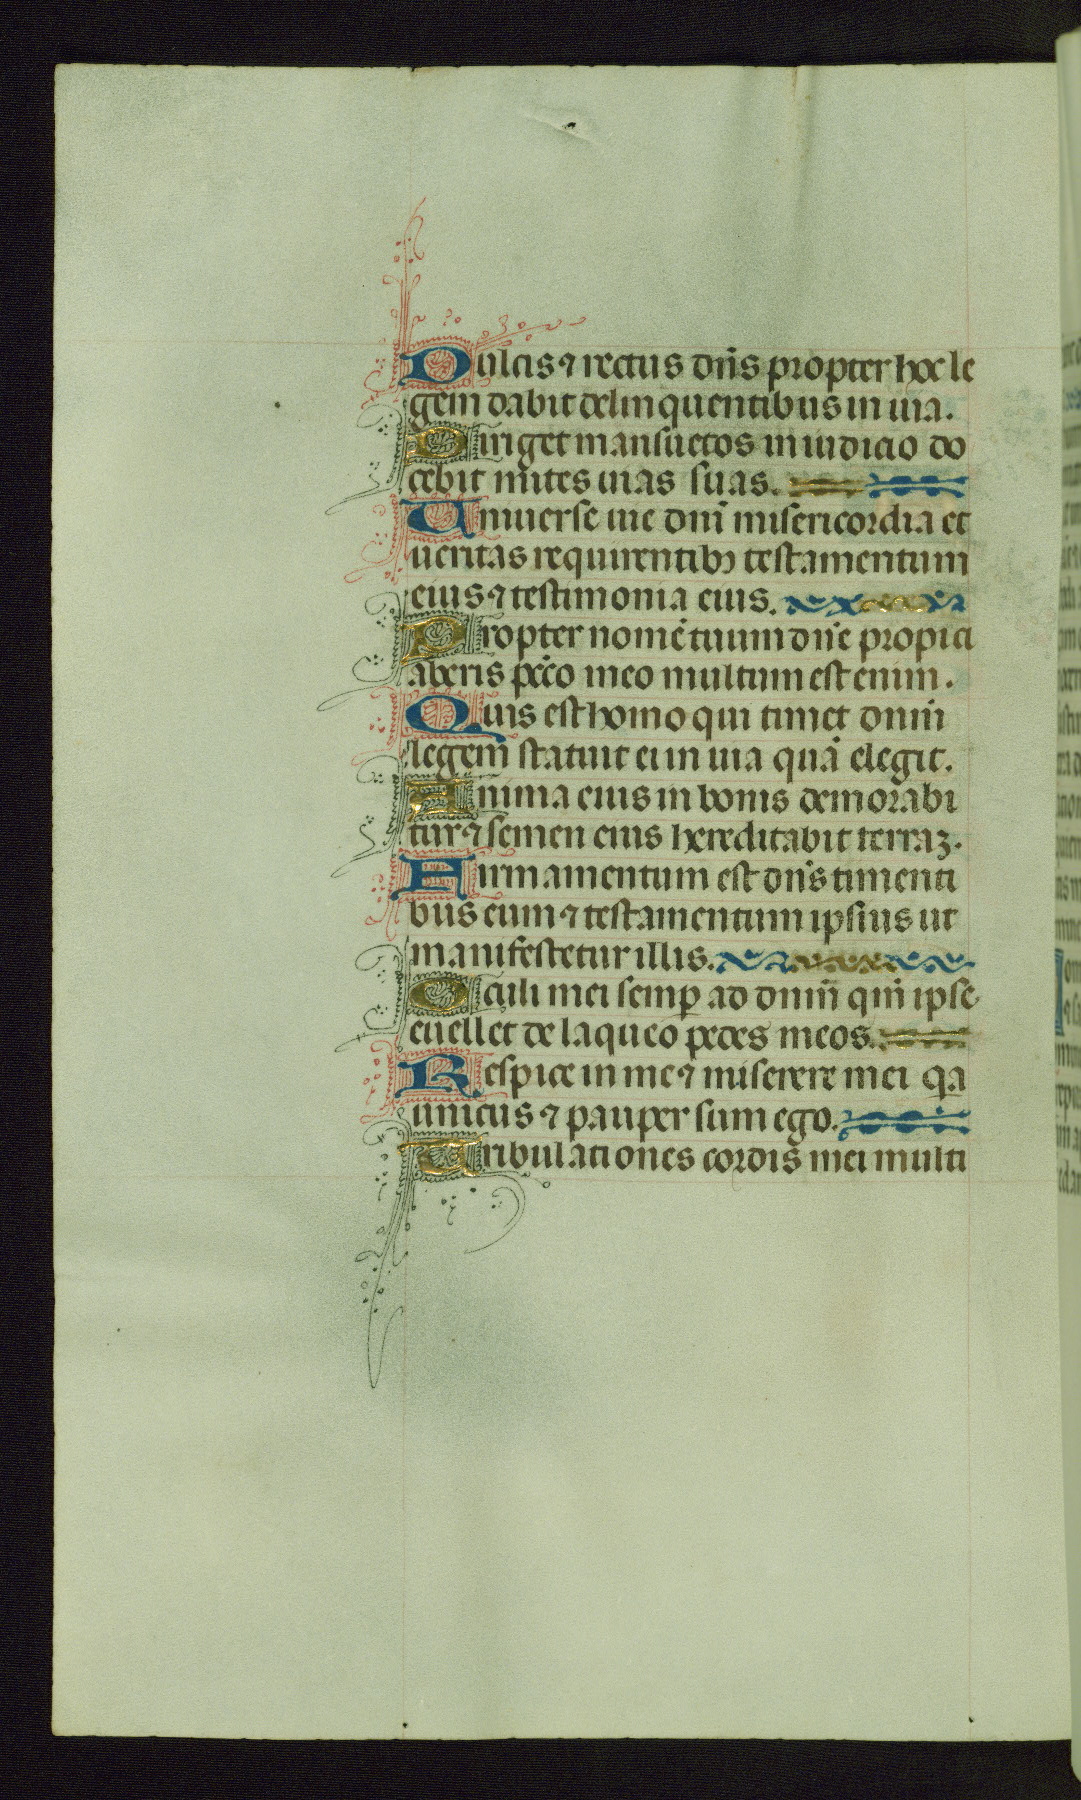 Dulcis ⁊ rectus dn̄s propter hoc le
gem dabit delinquentibus in uia.
Diriget mansuetos in iudicio do
cebit mites uias suas.
Uniuerse uie dn̄i misericordia et
ueritas requirentibꝫ testamentum
eius ⁊ testimonia eius.
Propter nomē tuum dn̄e propici
aberis pctō meo multum est enim.
Quis est homo qui timet dn̄m
legem statuit ei in uia quā elegit.
Anima eius in bonis demorabi
tur ⁊ semen eius hereditabit terraꝫ.
Firmamentum est dn̄s timenti
bus eum ⁊ testamentum ipsius ut
manifestetur illis.
Oculi mei semꝑ ad dn̄m qm̄ ipse
euellet de laqueo pedes meos.
Respice in me ⁊ miserere mei qa
unicus ⁊ pauper sum ego.
Tribulationes cordis mei multi